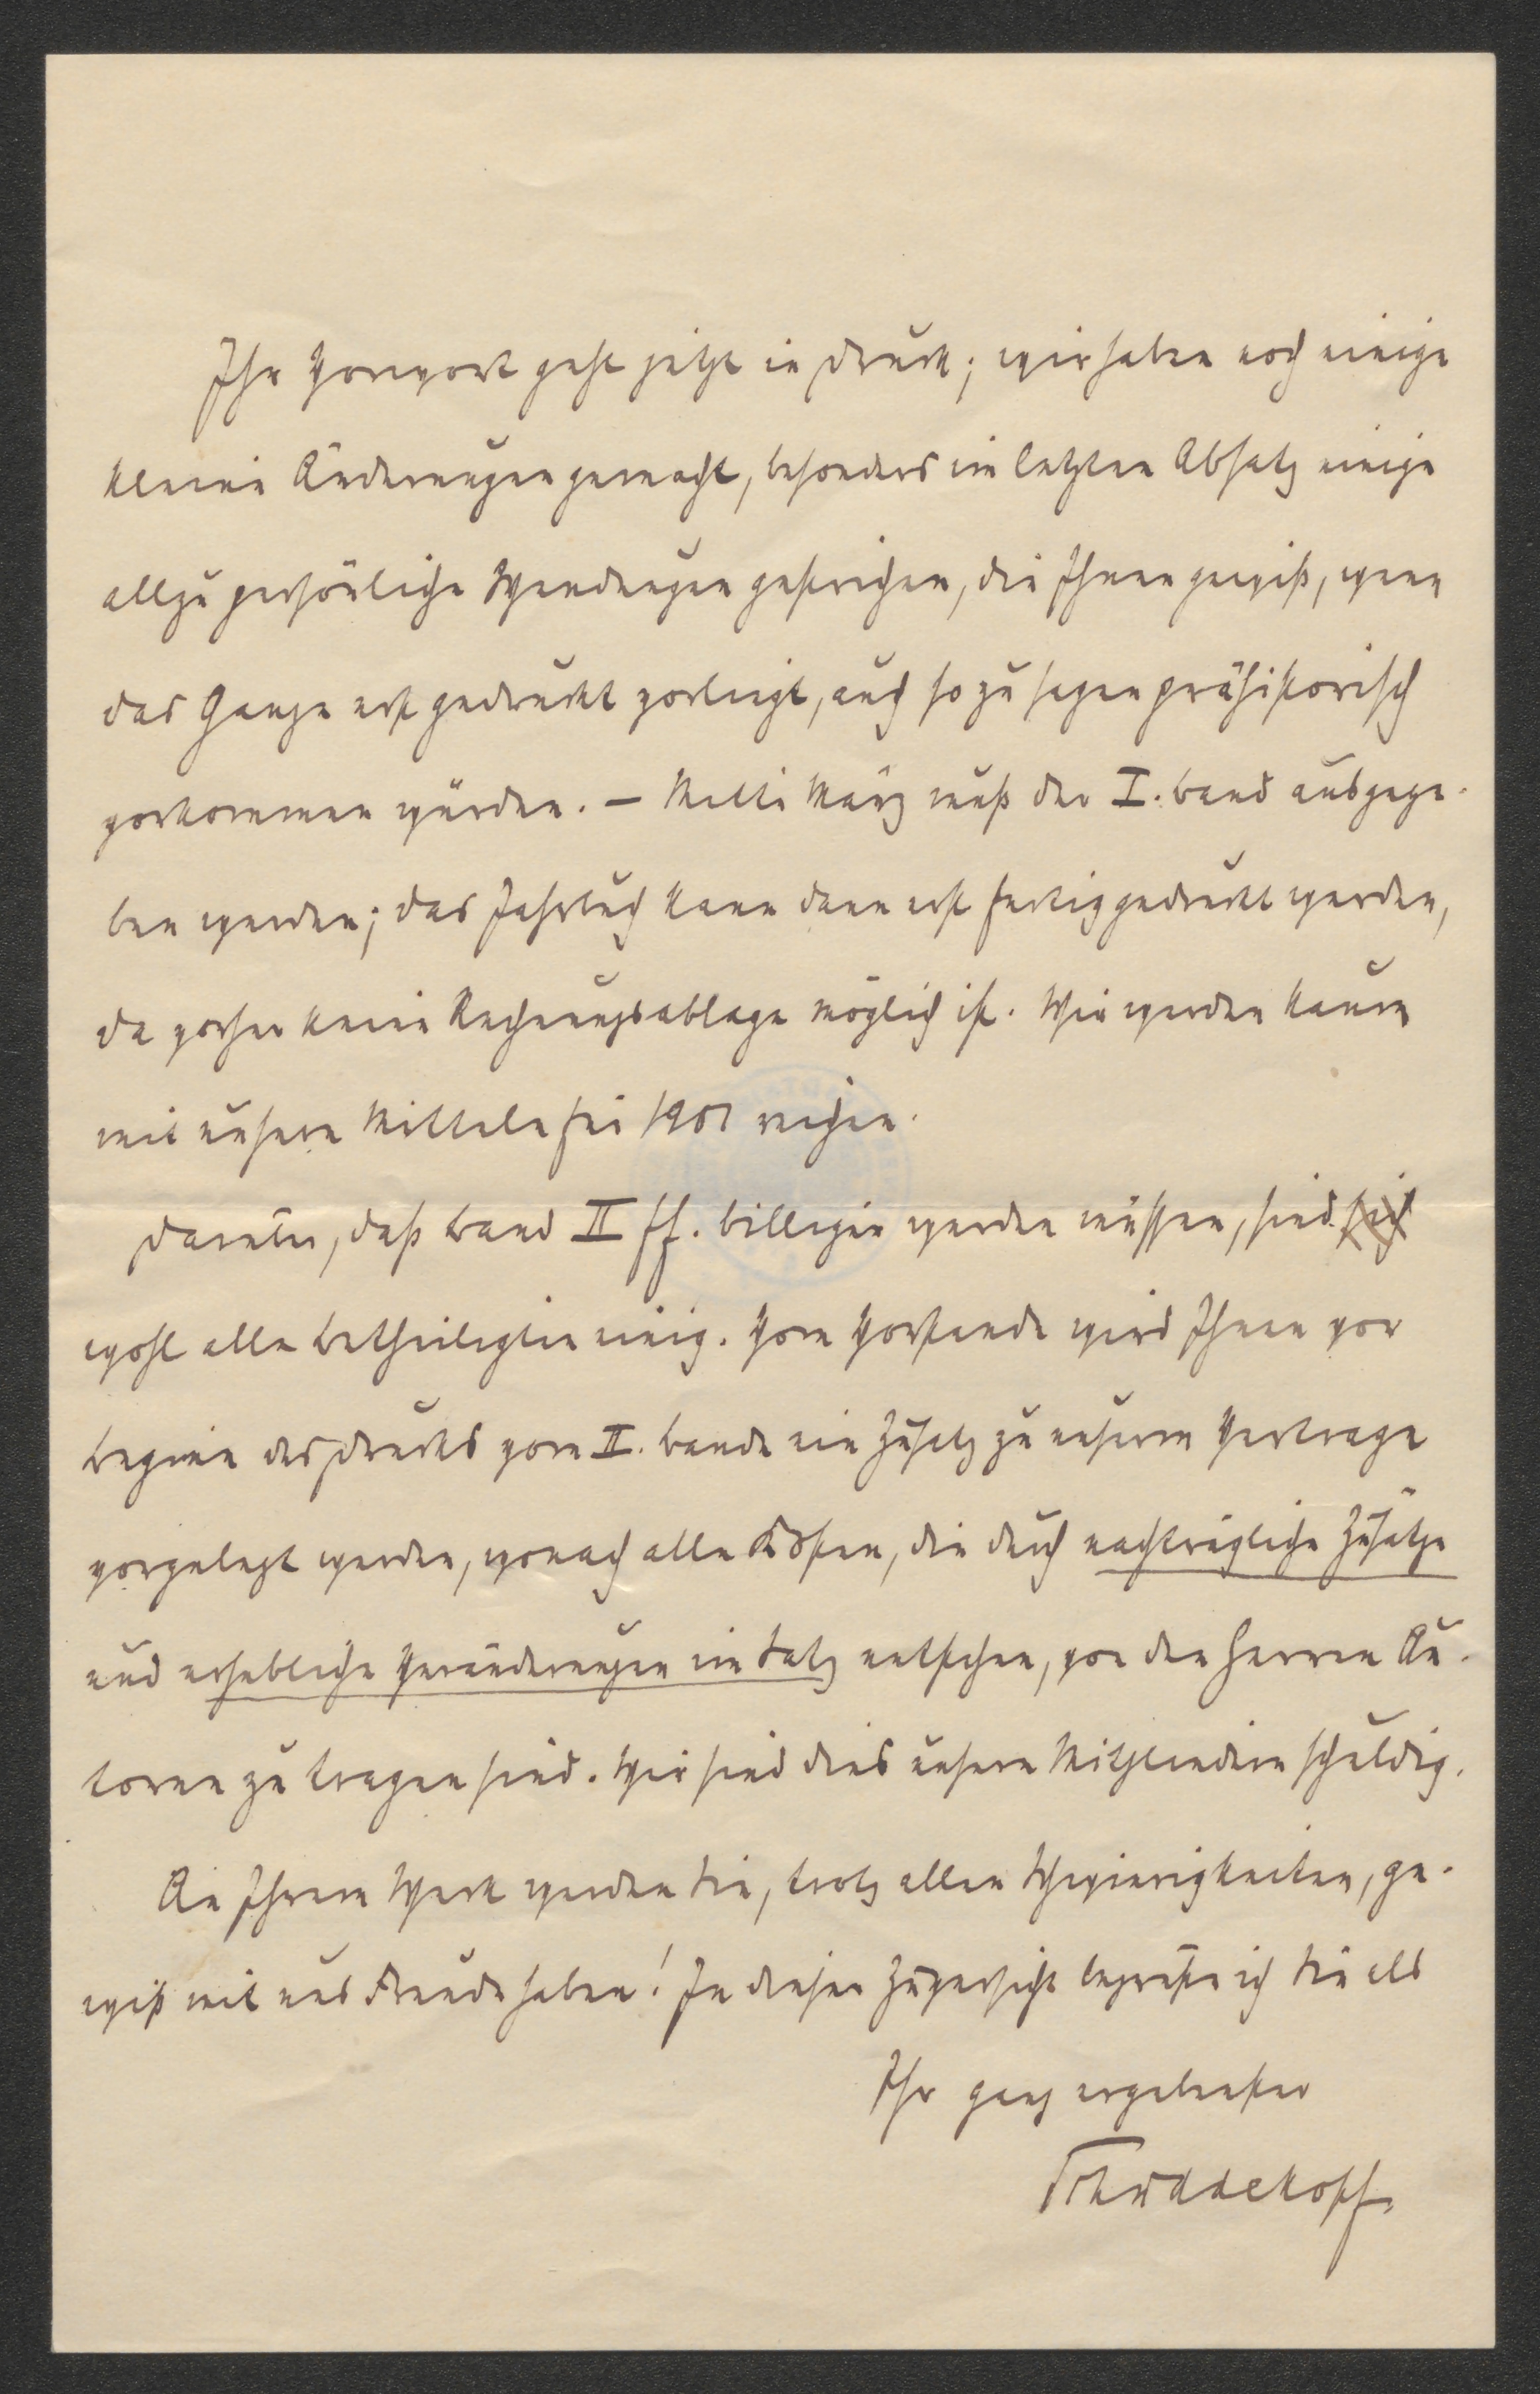 Ihr Vorwort geht jetzt in Druck; wir haben noch einige
kleine Änderungen gemacht, besonders im letzten Absatz einige
allzu persönliche Wendungen gestrichen, die Ihnen gewiß, wenn
das Ganze erst gedruckt vorliegt, auch so zu sagen prähistorisch
vorkommen würden. – Mitte März muß der I. Band ausgege-
ben werden; das Jahrbuch kann dann erst fertig gedruckt werden,
da vorher keine Rechnungsablage möglich ist. Wir werden kaum
mit unsern Mitteln für 1907 reichen.
Darüber, daß Band II ff. billiger werden müssen, sind sich
wohl alle Betheiligten einig. Vom Vorstande wird Ihnen vor
Beginn des Drucks vom II. Bande ein Zusatz zu unserm Vertrage
vorgelegt werden, wonach alle Kosten, die durch nachträgliche Zusätze
und erhebliche Veränderungen im Satz entstehen, von den Herren Au-
toren zu tragen sind. Wir sind dies unsern Mitgliedern schuldig.
An Ihrem Werk werden Sie, trotz allen Schwierigkeiten, ge-
wiß mit uns Freude haben! In dieser Zuversicht begrüße ich Sie als
Ihr ganz ergebenster
Schüddekopf.